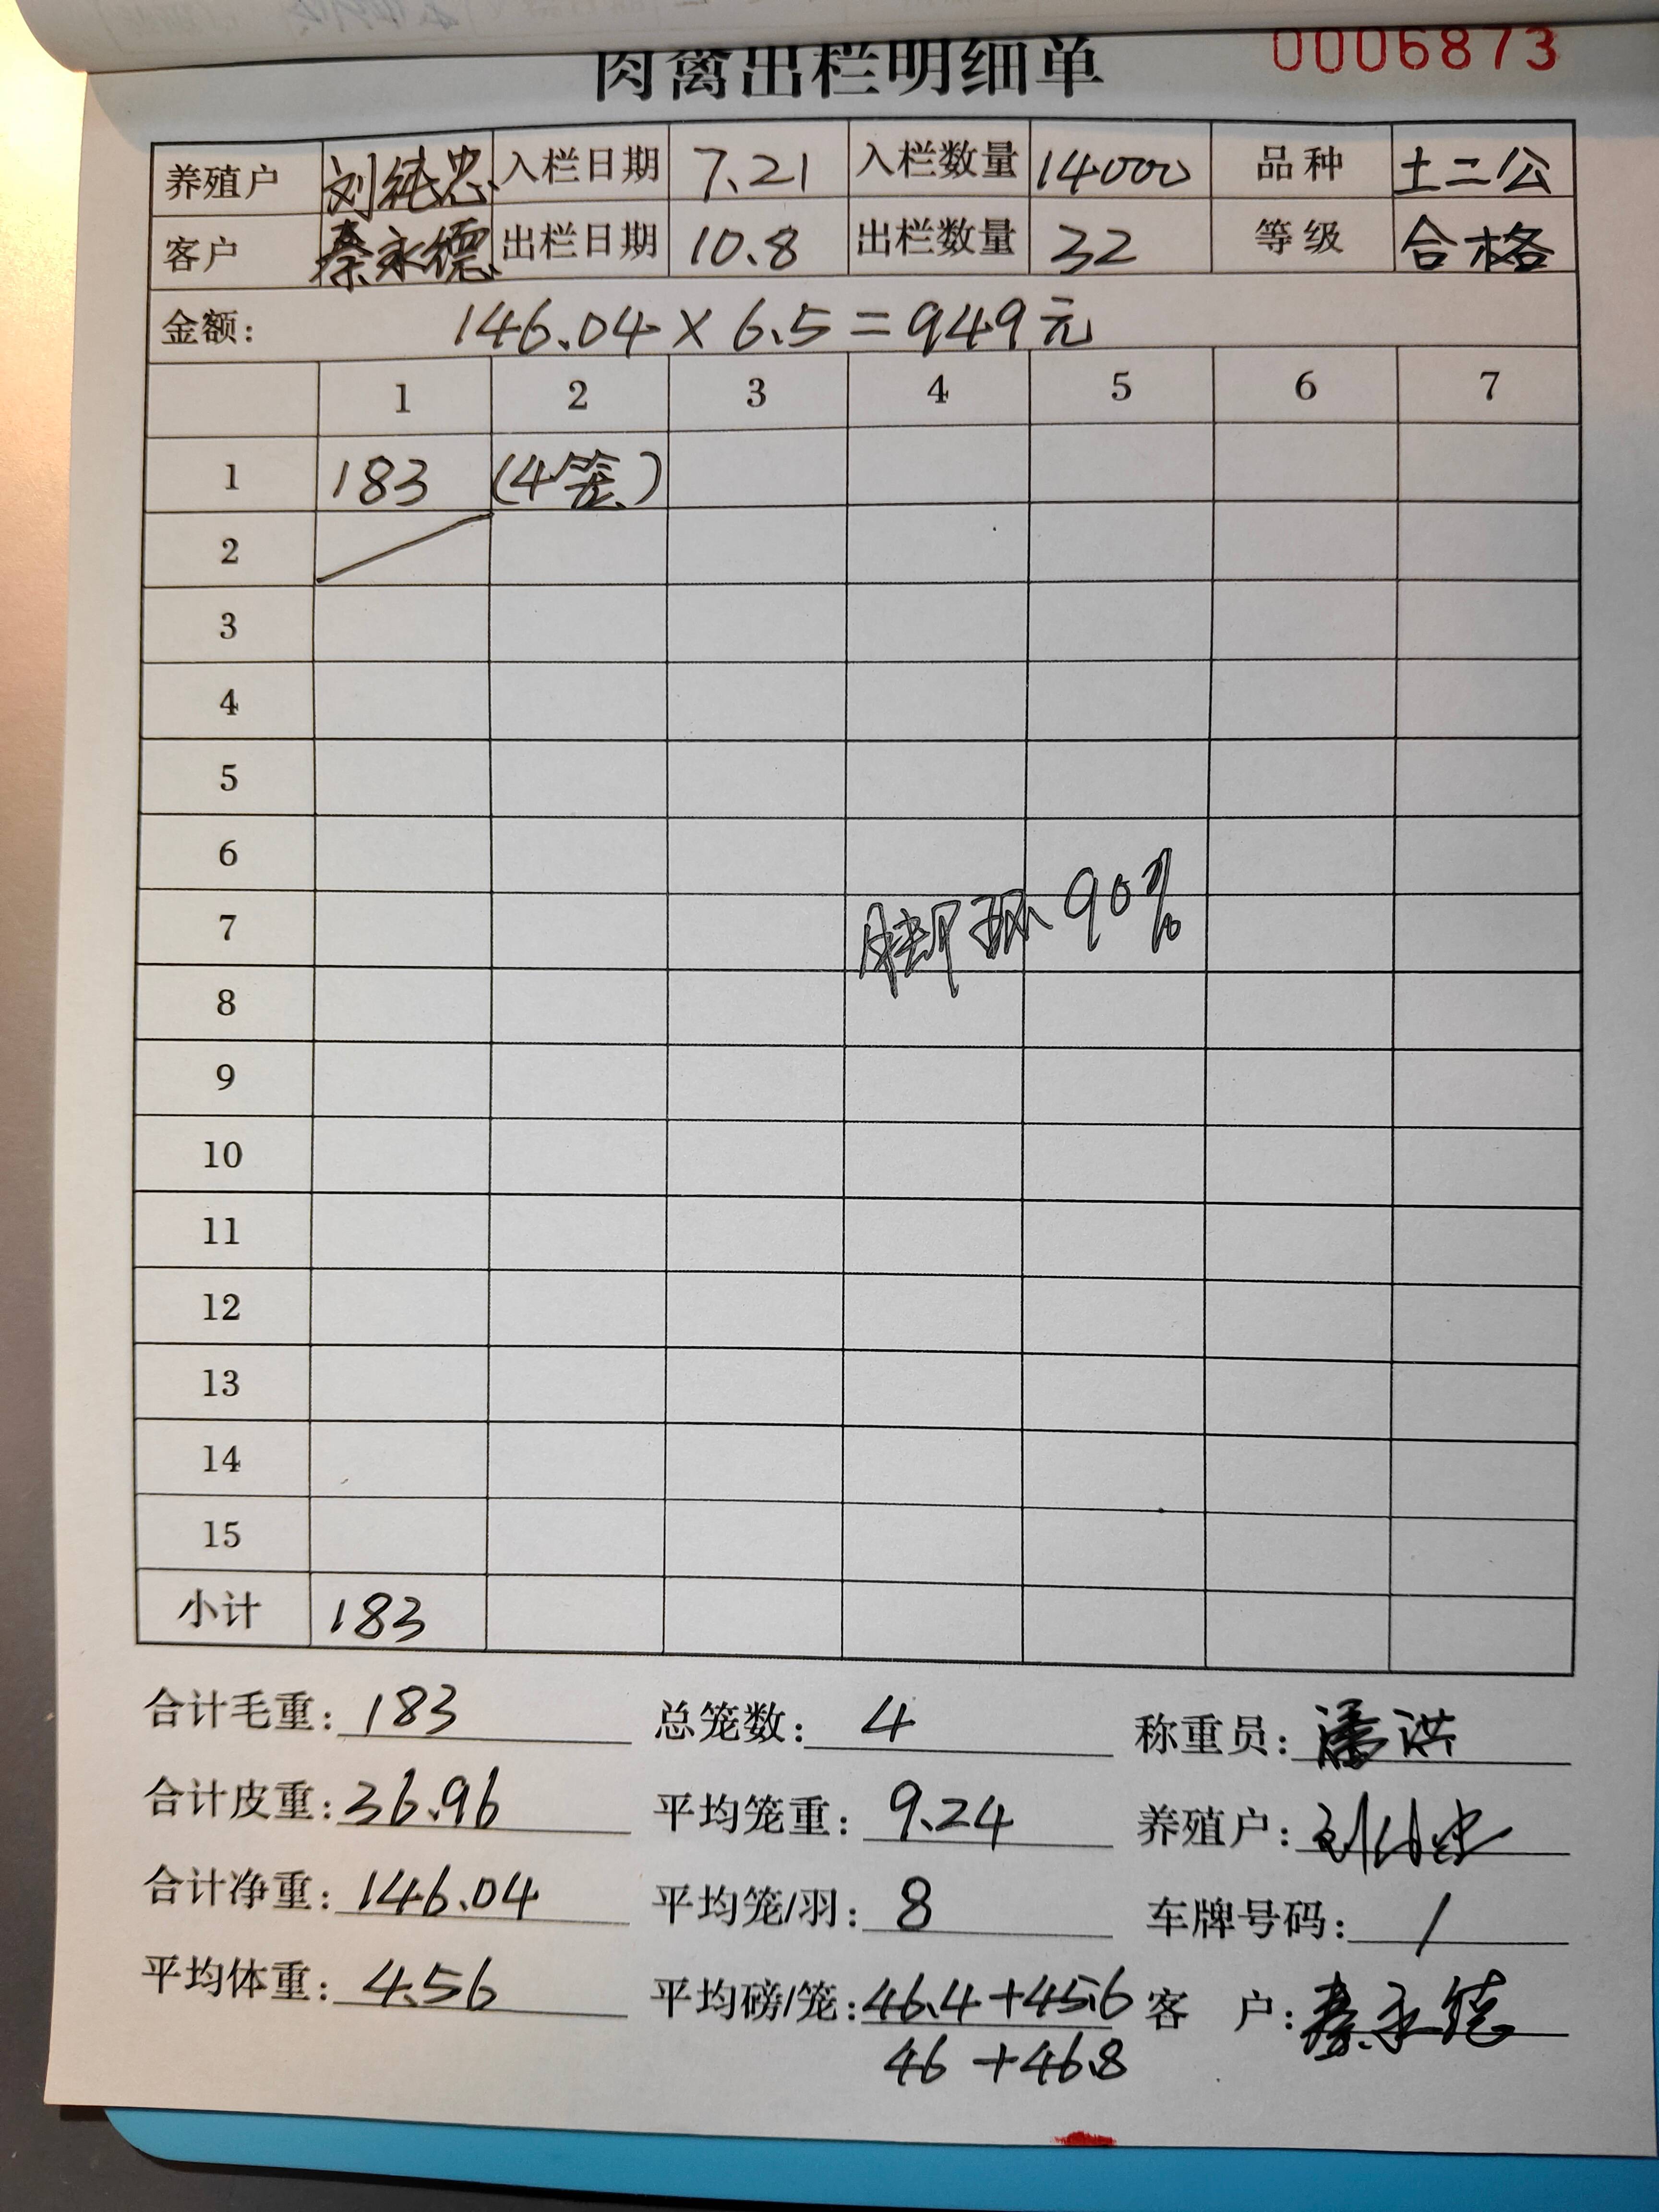 肉禽出栏明细单 0006873
养殖户 刘纯忠 入栏日期 7.21 入栏数量 14000 品种 土二公
客户 秦永德 出栏日期 10.8 出栏数量 32 等级 合格
金额: 146.04×6.5=949元
1 2 3 4 5 6 7
1 183 (4笼)
2
3
4
5
6
7 脚环90%
8
9
10
11
12
13
14
15
小计 183
合计毛重: 183 总笼数: 4 称重员: 潘洪
合计皮重: 36.96 平均笼重: 9.24 养殖户: 刘纯忠
合计净重: 146.04 平均笼/羽: 8 车牌号码: /
平均体重: 4.56 平均磅/笼: 46.4+45.6 客 户: 秦永德
46+46.8